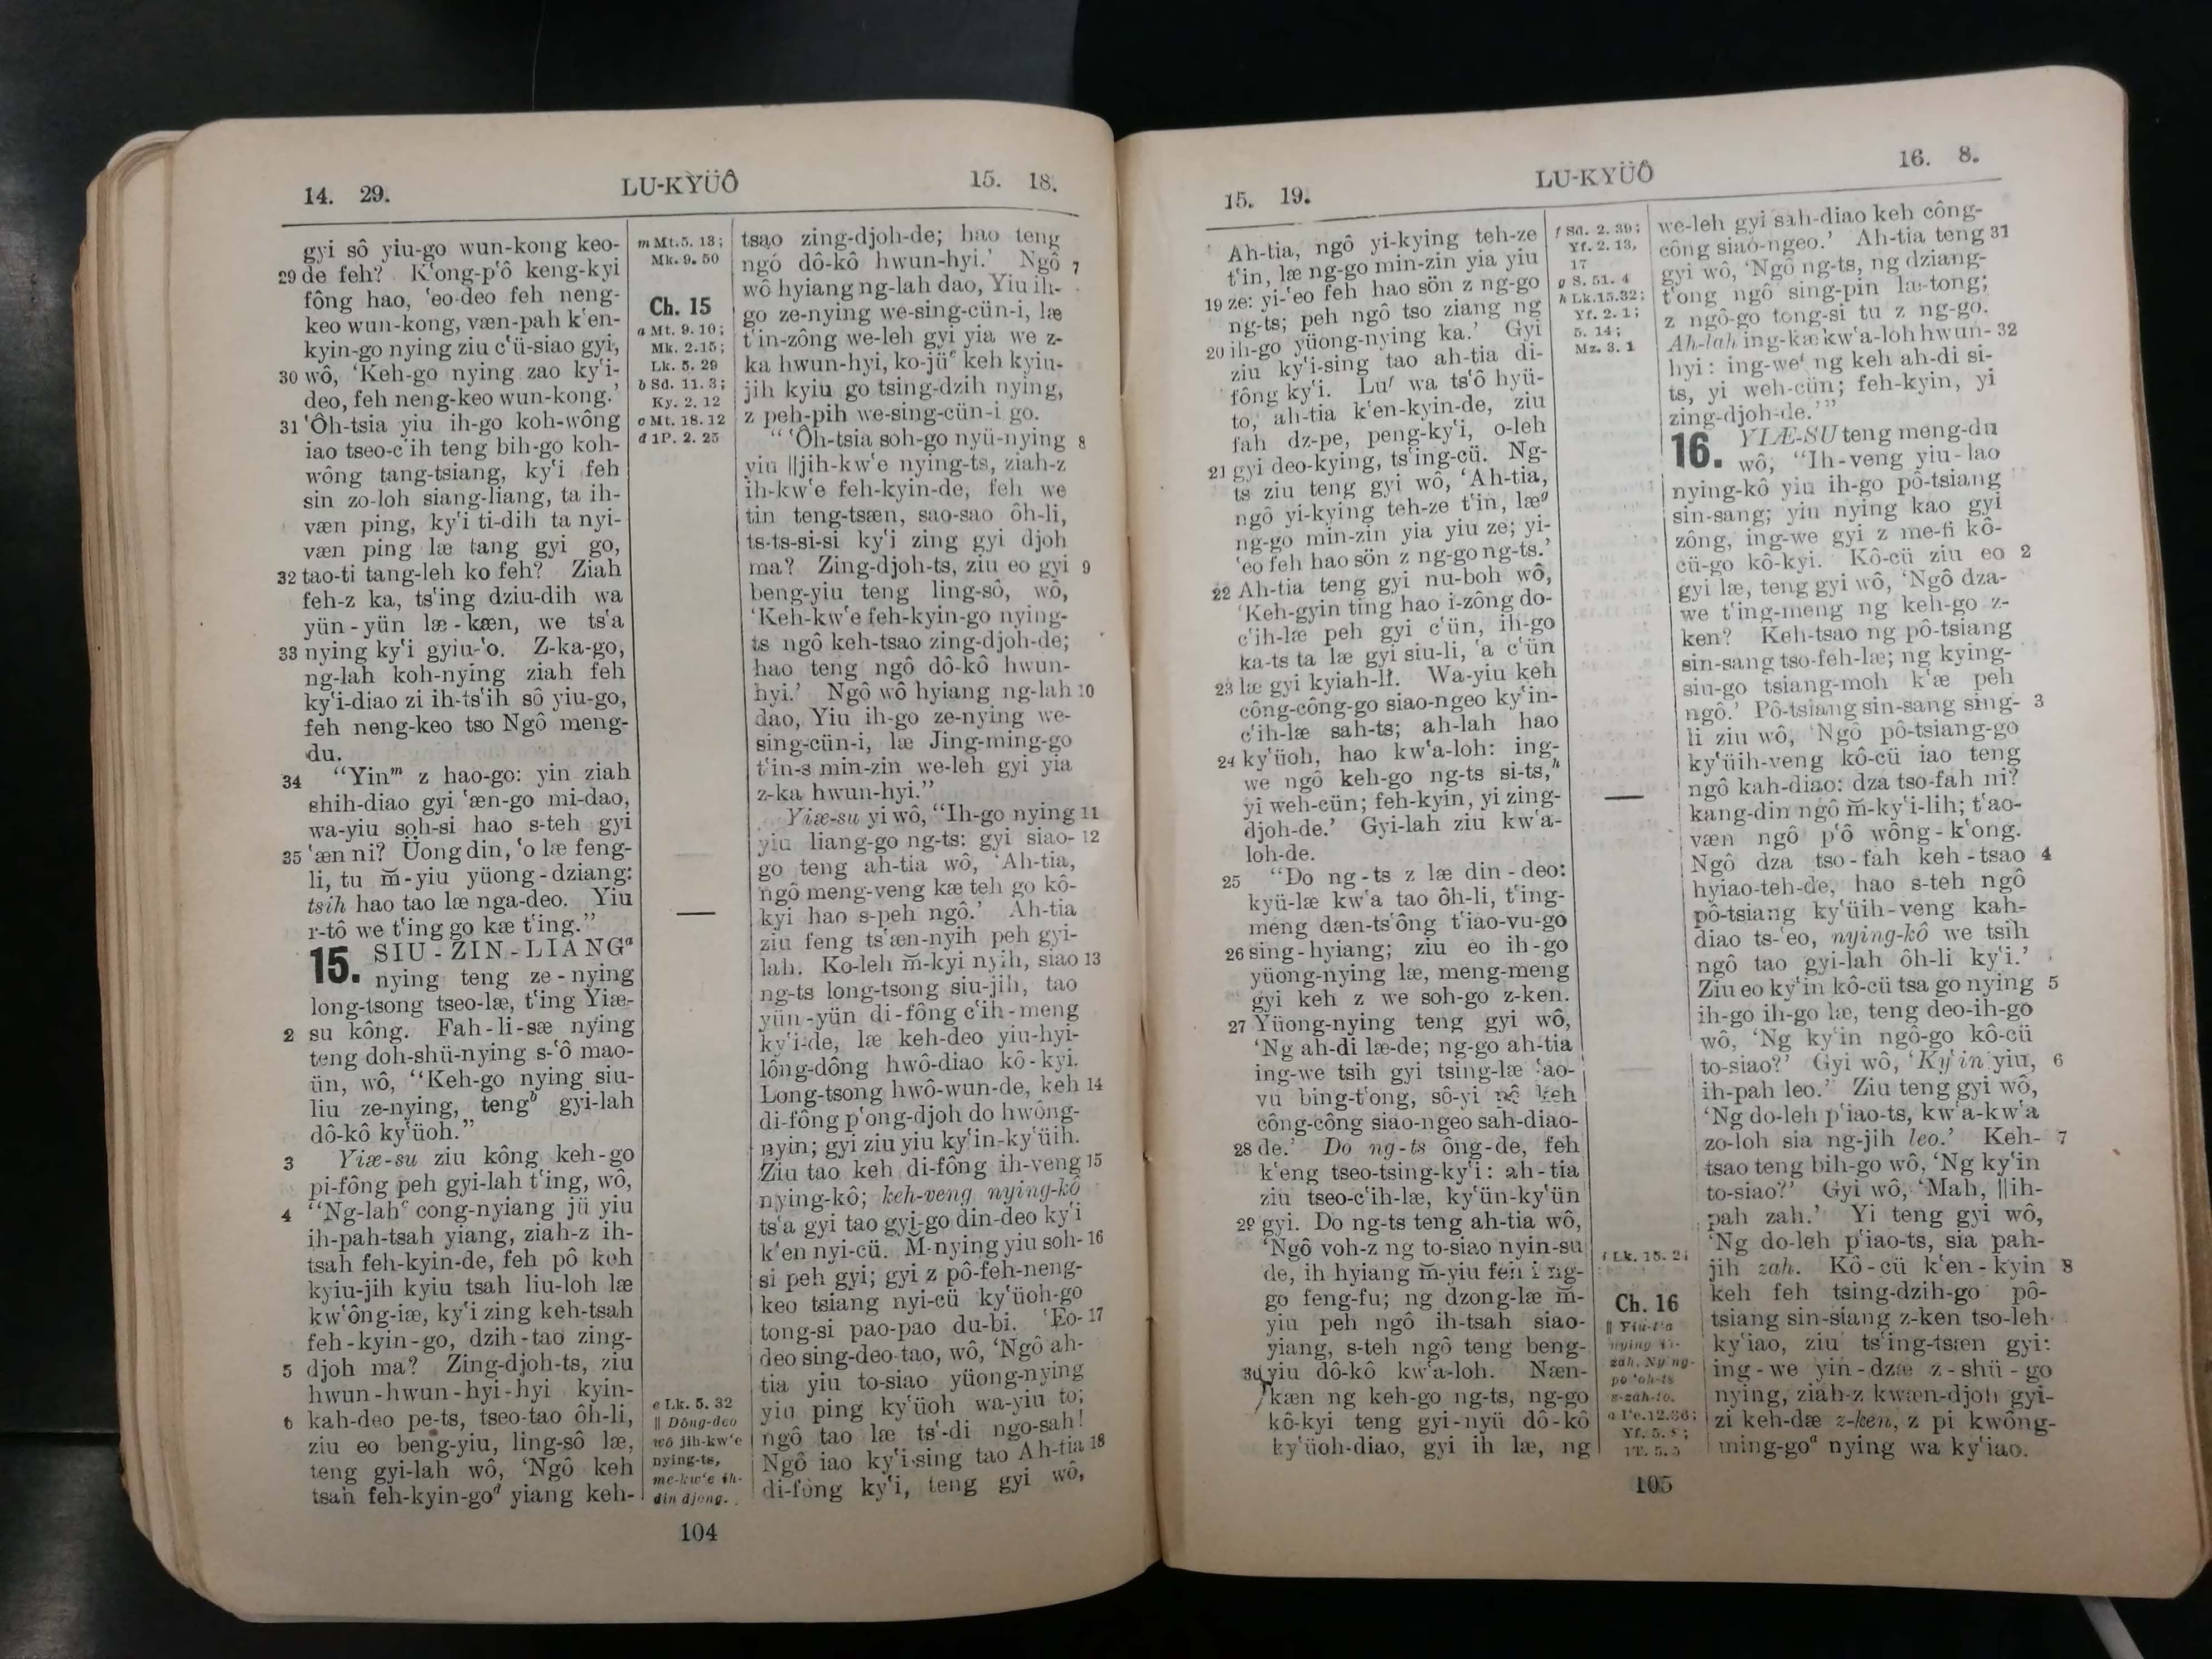 14. 29.
LU-KYÜÔ
15. 18.
gyi sô yiu-go wun-kong keo-
29 de feh? Kʻong-pʻô keng-kyi
fông hao, ʻeo-deo feh neng-
keo wun-kong, væn-pah kʻen-
kyin-go nying ziu cʻü-siao gyi,
30 wô, ‘Keh-go nying zao kyʻi-
deo, feh neng-keo wun-kong.’
31 ʻÔh-tsia yiu ih-go koh-wông
iao tseo-cʻih teng bih-go koh-
wông tang-tsiang, kyʻi feh
sin zo-loh siang-liang, ta ih-
væn ping, kyʻi ti-dih ta nyi-
væn ping læ tang gyi go,
32 tao-ti tang-leh ko feh? Ziah
feh-z ka, tsʻing dziu-dih wa
yün-yün læ-kæn, we tsʻa
33 nying kyʻi gyiu-ʻo. Z-ka-go,
ng-lah koh-nying ziah feh
kyʻi-diao zi ih-tsʻih sô yiu-go,
feh neng-keo tso Ngô meng-
du.
34 “Yinᵐ z hao-go: yin ziah
shih-diao gyi ʻæn-go mi-dao,
wa-yiu soh-si hao s-teh gyi
35 ʻæn ni? Üong din, ʻo læ feng-
li, tu m̆-yiu yüong-dziang:
tsih hao tao læ nga-deo. Yiu
r-tô we tʻing go kæ tʻing.”
15. SIU-ZIN-LIANGᵃ
nying teng ze-nying
long-tsong tseo-læ, tʻing Yiæ-
2 su kông. Fah-li-sæ nying
teng doh-shü-nying s-ʻô mao-
ün, wô, “Keh-go nying siu-
liu ze-nying, tengᵇ gyi-lah
dô-kô kyʻüoh.”
3 Yiæ-su ziu kông keh-go
pi-fông peh gyi-lah tʻing, wô,
4 “Ng-lahᶜ cong-nyiang jü yiu
ih-pah-tsah yiang, ziah-z ih-
tsah feh-kyin-de, feh pô keh
kyiu-jih kyiu tsah liu-loh læ
kwʻông-iæ, kyʻi zing keh-tsah
feh-kyin-go, dzih-tao zing-
5 djoh ma? Zing-djoh-ts, ziu
hwun-hwun-hyi-hyi kyin-
6 kah-deo pe-ts, tseo-tao ôh-li,
ziu eo beng-yiu, ling-sô læ,
teng gyi-lah wô, ‘Ngô keh
tsah feh-kyin-goᵈ yiang keh-
m Mt. 5. 13;
Mk. 9. 50
Ch. 15
a Mt. 9. 10;
Mk. 2.15;
Lk. 5. 29
b Sd. 11. 3;
Ky. 2. 12
c Mt. 18. 12
d 1P. 2. 25
e Lk. 5. 32
‖ Dông-deo
wô jih-kwʻe
nying-ts,
me-kwʻe ih-
din djong.
tsao zing-djoh-de; hao teng
ngô dô-kô hwun-hyi.’ Ngô 7
wô hyiang ng-lah dao, Yiu ih-
go ze-nying we-sing-cün-i, læ
tʻin-zông we-leh gyi yia we z-
ka hwun-hyi, ko-jüᵉ keh kyiu-
jih kyiu go tsing-dzih nying,
z peh-pih we-sing-cün-i go.
“ʻÔh-tsia soh-go nyü-nying 8
yiu ‖jih-kwʻe nying-ts, ziah-z
ih-kwʻe feh-kyin-de, feh we
tin teng-tsæn, sao-sao ôh-li,
ts-ts-si-si kyʻi zing gyi djoh
ma? Zing-djoh-ts, ziu eo gyi 9
beng-yiu teng ling-sô, wô,
‘Keh-kwʻe feh-kyin-go nying-
ts ngô keh-tsao zing-djoh-de;
hao teng ngô dô-kô hwun-
hyi.’ Ngô wô hyiang ng-lah 10
dao, Yiu ih-go ze-nying we-
sing-cün-i, læ Jing-ming-go
tʻin-s min-zin we-leh gyi yia
z-ka hwun-hyi.”
Yiæ-su yi wô, “Ih-go nying 11
yiu liang-go ng-ts: gyi siao- 12
go teng ah-tia wô, ‘Ah-tia,
ngô meng-veng kæ teh go kô-
kyi hao s-peh ngô.’ Ah-tia
ziu feng tsʻæn-nyih peh gyi-
lah. Ko-leh m̆-kyi nyih, siao 13
ng-ts long-tsong siu-jih, tao
yün-yün di-fông cʻih-meng
kyʻi-de, læ keh-deo yiu-hyi-
lông-dông hwô-diao kô-kyi.
Long-tsong hwô-wun-de, keh 14
di-fông pʻong-djoh do hwông-
nyin; gyi ziu yiu kyʻin-kyʻüih.
Ziu tao keh di-fông ih-veng 15
nying-kô; keh-veng nying-kô
tsʻa gyi tao gyi-go din-deo kyʻi
kʻen nyi-cü. M̆-nying yiu soh- 16
si peh gyi; gyi z pô-feh-neng-
keo tsiang nyi-cü kyʻüoh-go
tong-si pao-pao du-bi. ʻEo- 17
deo sing-deo tao, wô, ‘Ngô ah-
tia yiu to-siao yüong-nying
yiu ping kyʻüoh wa-yiu to;
ngô tao læ tsʻ-di ngo-sah!
Ngô iao kyʻi-sing tao Ah-tia 18
di-fông kyʻi, teng gyi wô,
104
15. 19.
LU-KYÜÔ
16. 8.
Ah-tia, ngô yi-kying teh-ze
tʻin, læ ng-go min-zin yia yiu
19 ze: yi-ʻeo feh hao sön z ng-go
ng-ts; peh ngô tso ziang ng
20 ih-go yüong-nying ka.’ Gyi
ziu kyʻi-sing tao ah-tia di-
fông kyʻi. Luᶠ wa tsʻô hyü-
to, ah-tia kʻen-kyin-de, ziu
fah dz-pe, peng-kyʻi, o-leh
21 gyi deo-kying, tsʻing-cü. Ng-
ts ziu teng gyi wô, ‘Ah-tia,
ngô yi-kying teh-ze tʻin, læᵍ
ng-go min-zin yia yiu ze; yi-
ʻeo feh hao sön z ng-go ng-ts.’
22 Ah-tia teng gyi nu-boh wô,
‘Keh-gyin ting hao i-zông do-
cʻih-læ peh gyi cʻün, ih-go
ka-ts ta læ gyi siu-li, ʻa cʻün
23 læ gyi kyiah-li. Wa-yiu keh
công-công-go siao-ngeo kyʻin-
cʻih-læ sah-ts; ah-lah hao
24 kyʻüoh, hao kwʻa-loh: ing-
we ngô keh-go ng-ts si-ts,ʰ
yi weh-cün; feh-kyin, yi zing-
djoh-de.’ Gyi-lah ziu kwʻa-
loh-de.
25 “Do ng-ts z læ din-deo:
kyü-læ kwʻa tao ôh-li, tʻing-
meng dæn-tsʻông tʻiao-vu-go
26 sing-hyiang; ziu eo ih-go
yüong-nying læ, meng-meng
gyi keh z we soh-go z-ken.
27 Yüong-nying teng gyi wô,
‘Ng ah-di læ-de; ng-go ah-tia
ing-we tsih gyi tsing-læ ʻao-
vu bing-tʻong, sô-yi pô keh
công-công siao-ngeo sah-diao-
28 de.’ Do ng-ts ông-de, feh
kʻeng tseo-tsing-kyʻi: ah-tia
ziu tseo-cʻih-læ, kyʻün-kyʻün
29 gyi. Do ng-ts teng ah-tia wô,
‘Ngô voh-z ng to-siao nyin-su
de, ih hyiang m̆-yiu feh i ng-
go feng-fu; ng dzong-læ m̆-
yiu peh ngô ih-tsah siao-
yiang, s-teh ngô teng beng-
30 yiu dô-kô kwʻa-loh. Næn-
kæn ng keh-go ng-ts, ng-go
kô-kyi teng gyi-nyü dô-kô
kyʻüoh-diao, gyi ih læ, ng
f Sd. 2. 39;
Yf. 2. 13,
17
g S. 51. 4
h Lk.15.32;
Yf. 2. 1;
5. 14;
Mz. 3. 1
i Lk. 15. 24
Ch. 16
a Yf. 5. 8;
1T. 5. 5
we-leh gyi sah-diao keh công-
công siao-ngeo.’ Ah-tia teng 31
gyi wô, ‘Ngô ng-ts, ng dziang-
tʻong ngô sing-pin læ-tong;
z ngô-go tong-si tu z ng-go.
Ah-lah ing-kæ kwʻa-loh hwun- 32
hyi: ing-weⁱ ng keh ah-di si-
ts, yi weh-cün; feh-kyin, yi
zing-djoh-de.’”
16. YIÆ-SU teng meng-du
wô, “Ih-veng yiu-lao
nying-kô yiu ih-go pô-tsiang
sin-sang; yiu nying kao gyi
zông, ing-we gyi z me-fi kô-
cü-go kô-kyi. Kô-cü ziu eo 2
gyi læ, teng gyi wô, ‘Ngô dza-
we tʻing-meng ng keh-go z-
ken? Keh-tsao ng pô-tsiang
sin-sang tso-feh-læ; ng kying-
siu-go tsiang-moh kʻæ peh
ngô.’ Pô-tsiang sin-sang sing- 3
li ziu wô, ‘Ngô pô-tsiang-go
kyʻüih-veng kô-cü iao teng
ngô kah-diao: dza tso-fah ni?
kang-din ngô m̆-kyʻi-lih; tʻao-
væn ngô pʻô wông-kʻong.
Ngô dza tso-fah keh-tsao 4
hyiao-teh-de, hao s-teh ngô
pô-tsiang kyʻüih-veng kah-
diao ts-ʻeo, nying-kô we tsih
ngô tao gyi-lah ôh-li kyʻi.’
Ziu eo kyʻin kô-cü tsa go nying 5
ih-go ih-go læ, teng deo-ih-go
wô, ‘Ng kyʻin ngô-go kô-cü
to-siao?’ Gyi wô, ‘Kyʻin yiu, 6
ih-pah leo.’ Ziu teng gyi wô,
‘Ng do-leh pʻiao-ts, kwʻa-kwʻa
zo-loh sia ng-jih leo.’ Keh- 7
tsao teng bih-go wô, ‘Ng kyʻin
to-siao?’ Gyi wô, ‘Mah, ‖ih-
pah zah.’ Yi teng gyi wô,
‘Ng do-leh pʻiao-ts, sia pah-
jih zah. Kô-cü kʻen-kyin 8
keh feh tsing-dzih-go pô-
tsiang sin-siang z-ken tso-leh
kyʻiao, ziu tsʻing-tsæn gyi:
ing-we yin-dzæ z-shü-go
nying, ziah-z kwæn-djoh gyi-
zi keh-dæ z-ken, z pi kwông-
ming-goᵃ nying wa kyʻiao.
105